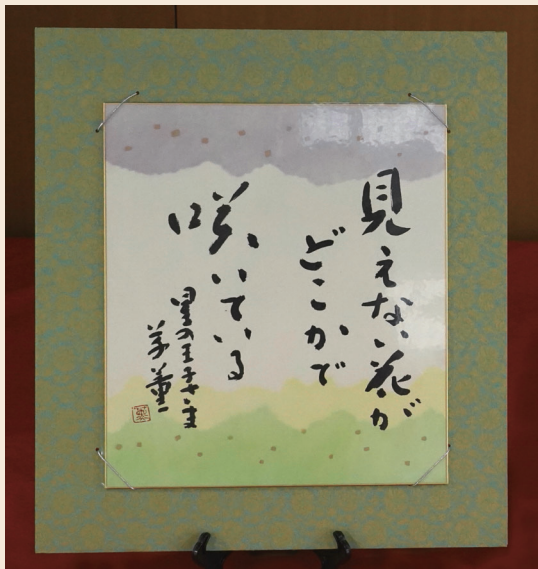 見えない花が
どこかで
咲いている
星の王子さま